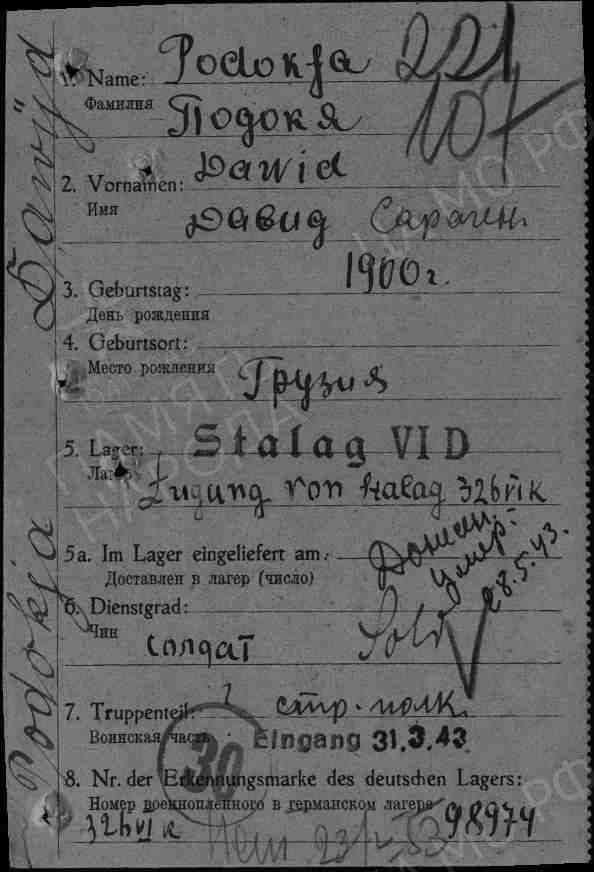 221
1. Name: Podokja
Фамилия Подокя
107
2. Vornamen: Dawid
Имя Давид
1900 г.
3. Geburtstag:
День рождения
4. Geburtsort:
Место рождения Грузия
5. Lager: Stalag VI D
Лагерь Zugang von Stalag 326 VI K
5a. Im Lager eingeliefert am:
Доставлен в лагерь (число)
умер.
28.5.43.
6. Dienstgrad: Sold
Чин солдат
7. Truppenteil: стр. полк.
Воинская часть Eingang 31.3.43
30
8. Nr. der Erkennungsmarke des deutschen Lagers:
Номер военнопленного в германском лагере
326 VI K 98974
Podokja Dawyd
ПАМЯТЬ НАРОДА
ЦА МО РФ